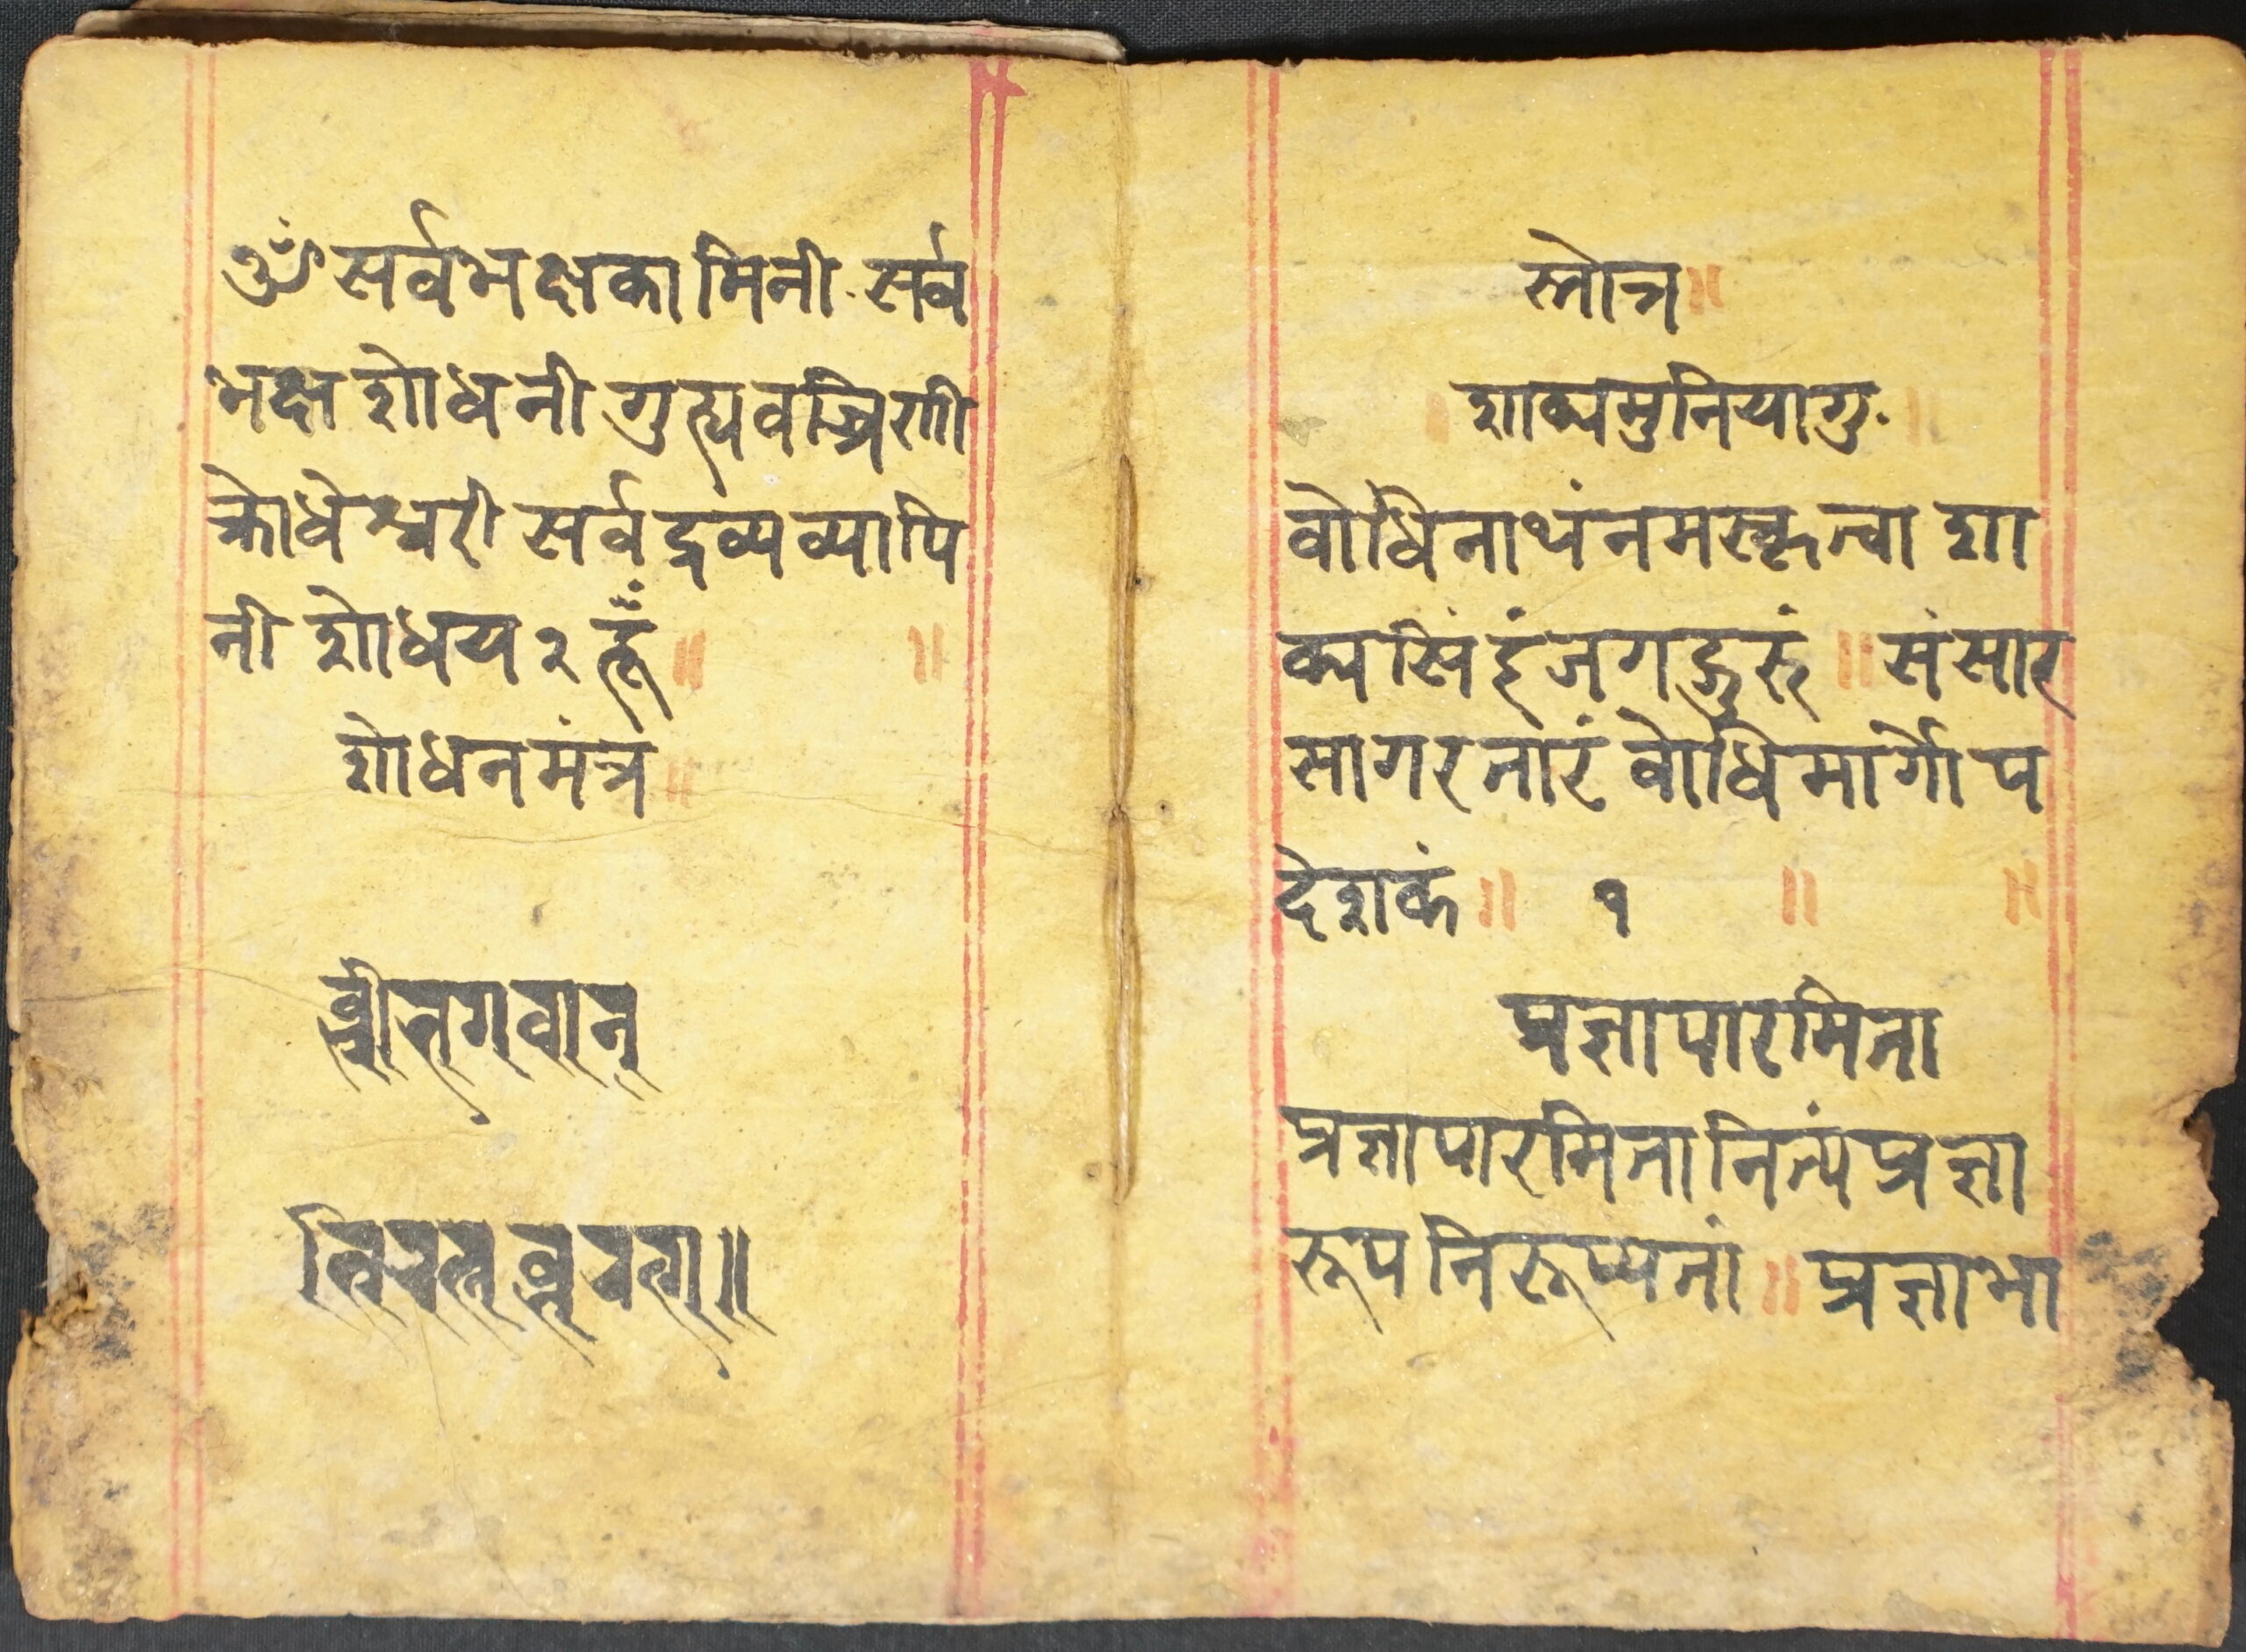 ॐ सर्वभक्षकामिनी सर्व
भक्ष शोधनी गुह्यवज्रिणी
क्रोधेश्वरी सर्व द्रव्य व्यापि
नी शोधय २ हूँ ॥ ॥
शोधनमंत्र ॥
स्तोत्र ॥
॥ शाक्यमुनियागु ॥
बोधिनाथं नमस्कृत्वा शा
क्यसिंहं जगद्गुरुं ॥ संसार
सागरतारं बोधिमार्गोप
देशकं ॥ १ ॥ ॥
प्रज्ञापारमिता
प्रज्ञापारमिता नित्यं प्रज्ञा
रूप निरूप्यतां ॥ प्रज्ञाभा